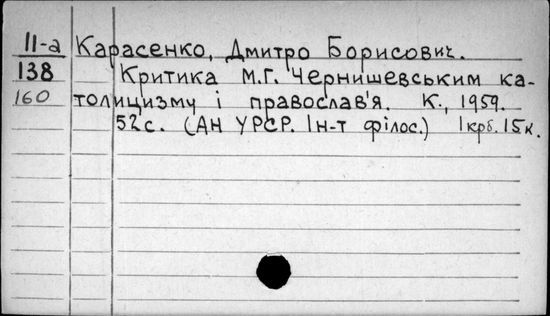 II-а Карасенко, Дмитро Борисович.
138 Критика М.Г. Чернишевським ка-
160 толицизму і православ'я. К., 1959.
52 с. (АН УРСР. Ін-т філос.) 1 крб. 15 к.